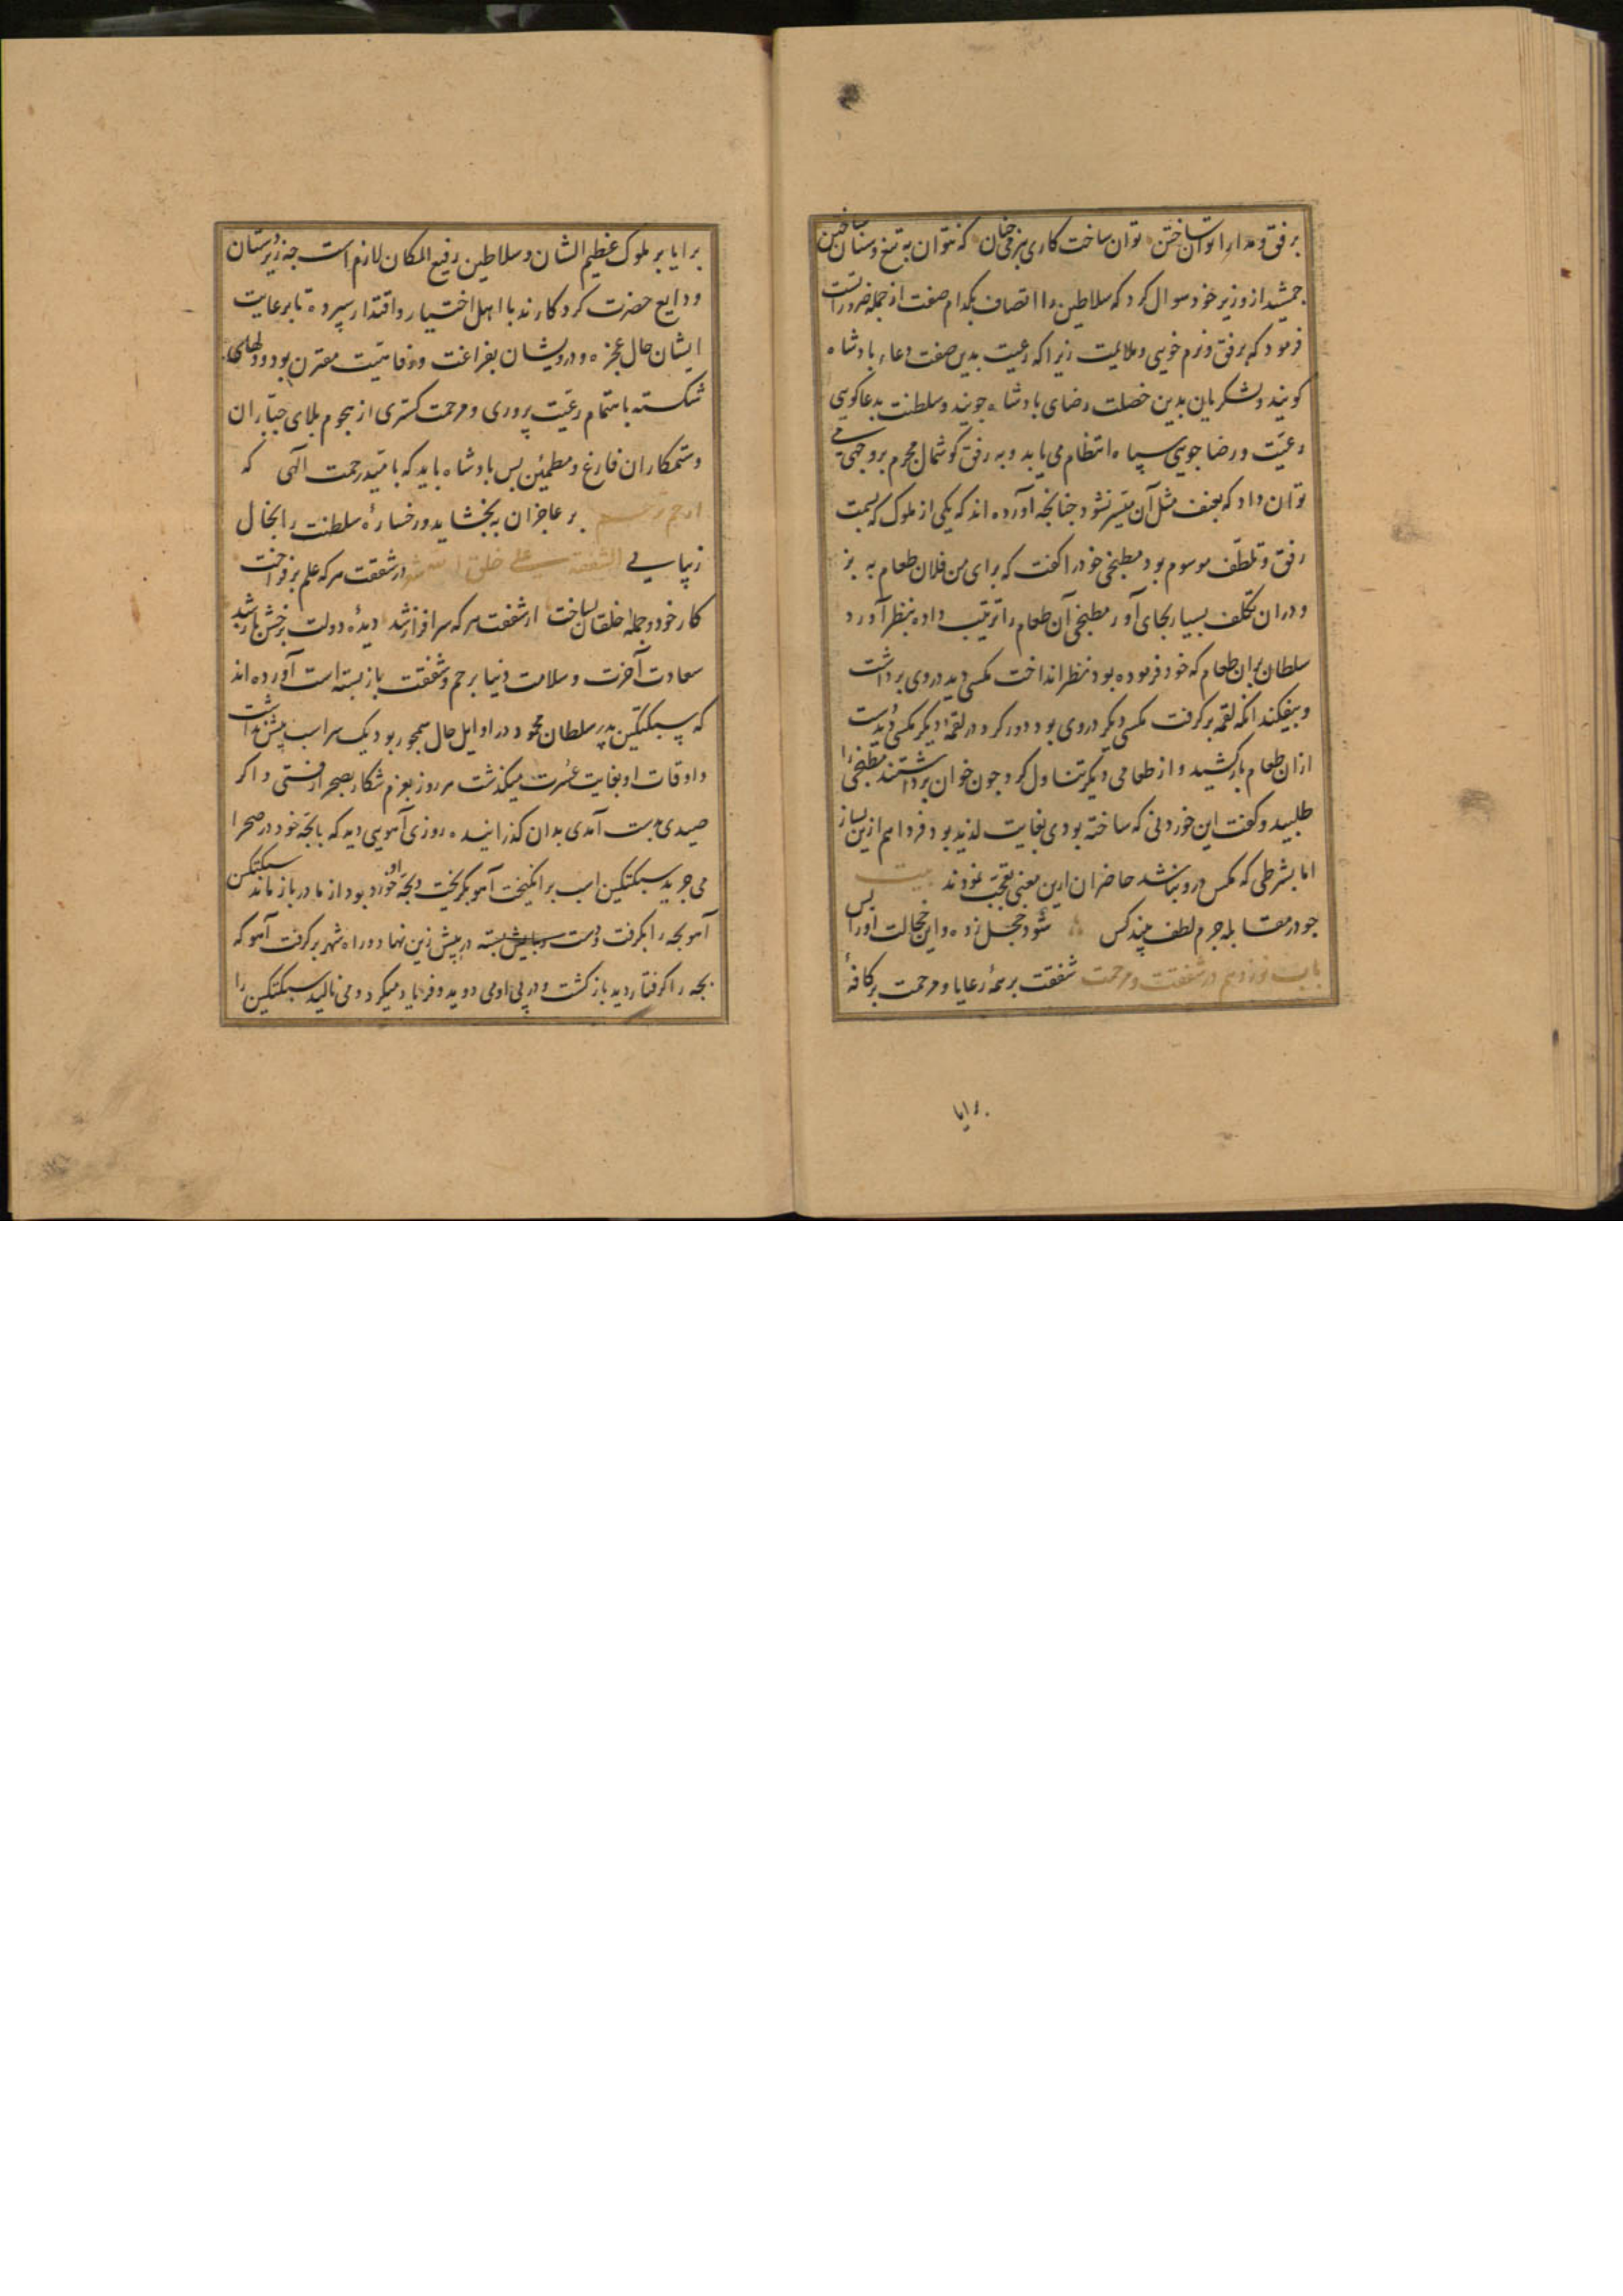 برفق و مدارا توان ساختن توان ساخت کاری بنرمی چنان که نتوان به تیغ و سنان ساختن
جمشید از وزیر خود سوال کرد که سلاطین را اتصاف بکدام صفت از جمله ضروراتست
فرمود که برفق و نرم خویی و ملایمت زیرا که رعیت بدین صفت دعاء بادشاه
کویند و لشکریان بدین خصلت رضای بادشاه جویند و سلطنت بدعا کویی
رعیّت و رضا جویی سپاه انتظام می یابد و به رفق کوشمال مجرم بر وجهی می
توان داد که بعنف مثل آن میّسر نشود جنانجه آورده اند که یکی از ملوک که بسمت
رفق و تلطّف موسوم بود مطبخی خود را کفت که برای من فلان طعام به بز
و دران تکلف بسیار بجای آور مطبخی آن طعام را ترتیب داده بنظر آورد
سلطان بران طعام که خود فرموده بود نظر انداخت مکسی دید در وی برداشت
و بیفکند انکه لقمه برکرفت مکسی دیکر در وی بود دور کرد در لقمهٔ دیکر مکسی دید دست
ازان طعام باز کشید و از طعامی دیکر تناول کرد و جون خوان برداشتند مطبخی را
طلبید و کفت این خوردنی که ساخته بودی بغایت لذیذ بود فردا هم ازین بساز
اما بشرطی که مکس درو نباشد حاضران ازین معنی تعجّب نمودند بیت
جو در مقابله جرم لطف بیند کس شود خجل زده و این خجالت او را بس
باب نوزدهم در شفقت و مرحمت شفقت بر همهٔ رعایا و مرحمت بر کافهٔ
برایا
برایا بر ملوک عظیم الشان و سلاطین رفیع المکان لازم است جه زیردستان
ودایع حضرت کردکارند با اهل اختیار و اقتدار سپرده تا برعایت
ایشان حال عجزه و درویشان بفراغت و رفاهیّت مقترن بود و دلهای
شکسته باهتمام رعیّت پروری و مرحمت کستری از هجوم بلای جبّاران
و ستمکاران فارغ و مطمئن بس بادشاه باید که بامّید رحمت الهی که
ارحم ترحم بر عاجزان به بخشاید و رخسارهٔ سلطنت را بخال
زیبایی الشفقه علی خلق الله در شفقت هرکه علم برفراخت
کار خود و جملهٔ خلقان بساخت از شفقت هرکه سرافراز شد دیدهٔ دولت برخش باز شد
سعادت آخرت و سلامت دنیا برحم و شفقت باز بسته است آورده اند
که سبکتکین پدر سلطان محمود در اوایل حال بیک سر اسب بیش نداشت
و اوقات او بغایت عُسرت میکذشت هر روز بعزم شکار بصحرا رفتی و اکر
صیدی بدست آمدی بدان کذرانیده روزی آهویی دید که با بجّه خود در صحرا
می جرید سبکتکین اسب برانکیخت آهو بکریخت و بجّه او خورد بود از مادر باز ماند سبکتکین
آهو بجه را بکرفت و دست و پایش بسته در پیش زین نهاد و راه شهر برکرفت آهو که
بجه را کرفتار دید باز کشت و در پی او می دوید و فریاد میکرد و می نالید سبکتکین را